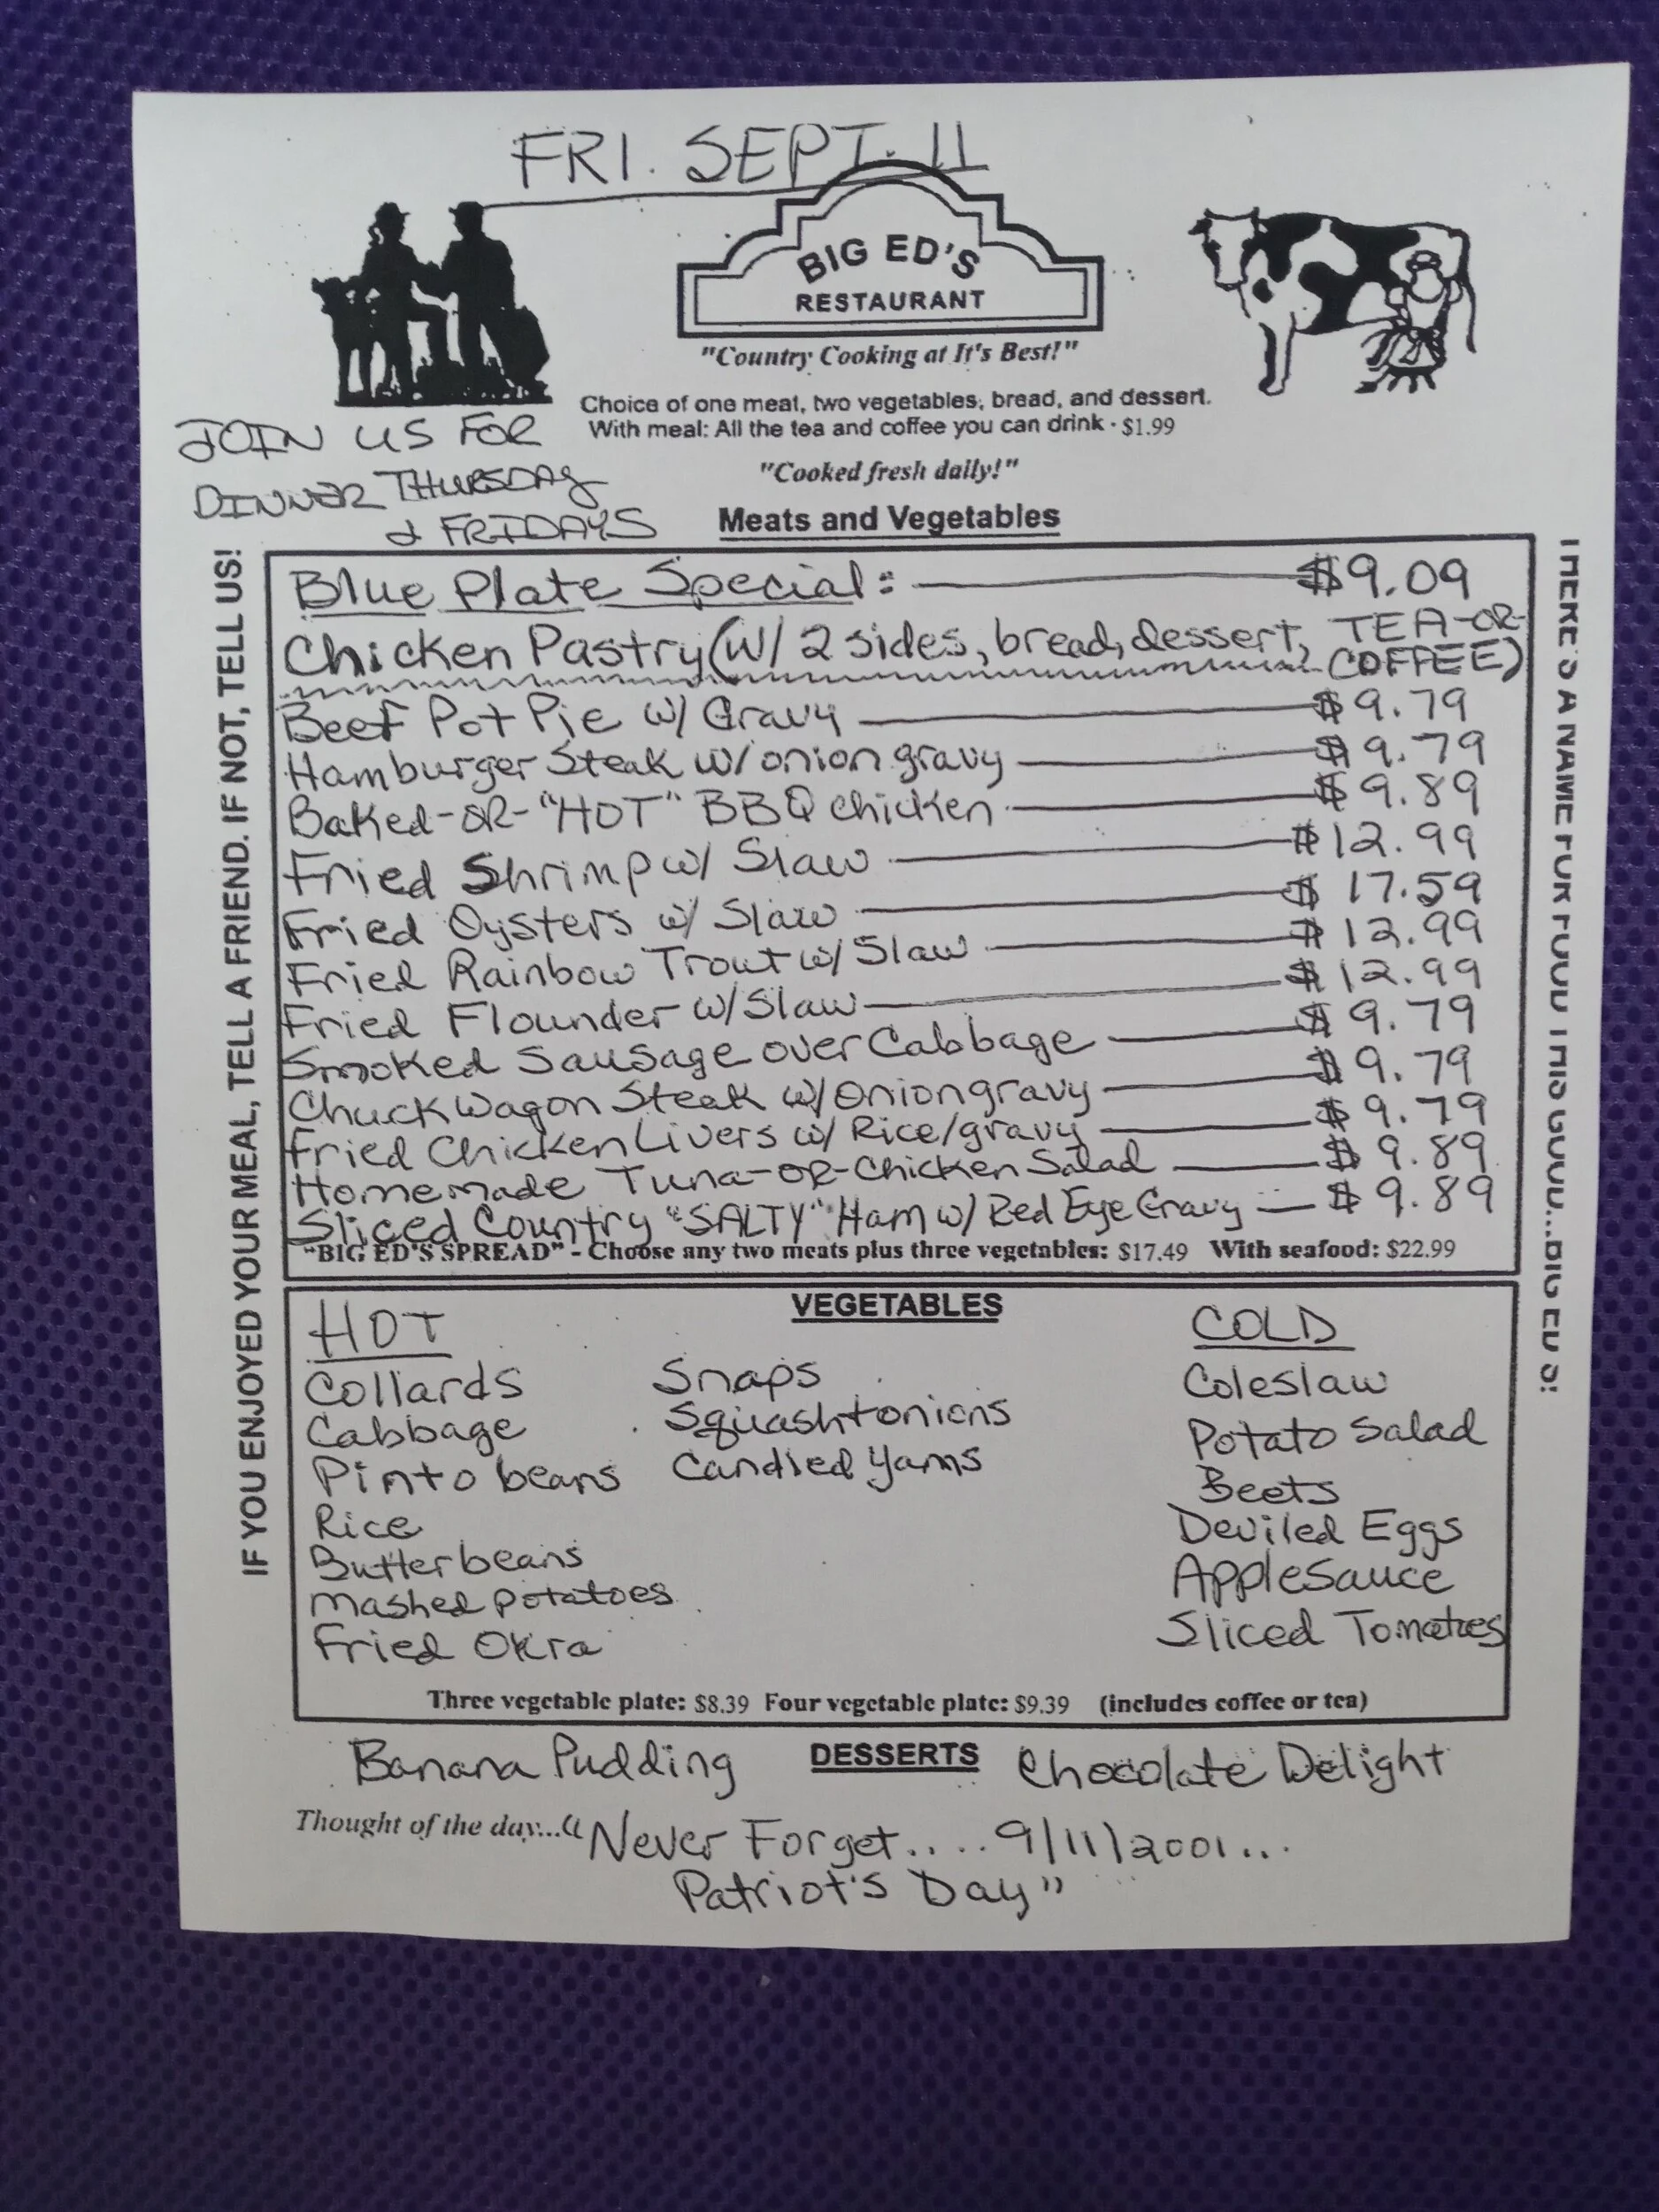 FRI. SEPT. 11
BIG ED'S
RESTAURANT
"Country Cooking at It's Best!"
Choice of one meat, two vegetables, bread, and dessert.
With meal: All the tea and coffee you can drink - $1.99
"Cooked fresh daily!"
JOIN US FOR
DINNER THURSDAY
& FRIDAYS
Meats and Vegetables
IF YOU ENJOYED YOUR MEAL, TELL A FRIEND. IF NOT, TELL US!
THERE'S A NAME FOR FOOD THIS GOOD...BIG ED'S!
Blue Plate Special: $9.09
Chicken Pastry (w/ 2 sides, bread, dessert, TEA-OR-
COFFEE)
Beef Pot Pie w/ Gravy $9.79
Hamburger Steak w/ onion gravy $9.79
Baked-OR-"HOT" BBQ chicken $9.89
Fried Shrimp w/ Slaw $12.99
Fried Oysters w/ Slaw $17.59
Fried Rainbow Trout w/ Slaw $12.99
Fried Flounder w/ Slaw $12.99
Smoked Sausage over Cabbage $9.79
Chuck Wagon Steak w/ Onion gravy $9.79
Fried Chicken Livers w/ Rice/gravy $9.79
Homemade Tuna-OR-Chicken Salad $9.89
Sliced Country "SALTY" Ham w/ Red Eye Gravy $9.89
"BIG ED'S SPREAD" - Choose any two meats plus three vegetables: $17.49 With seafood: $22.99
VEGETABLES
HOT
Collards
Cabbage
Pinto beans
Rice
Butterbeans
Mashed Potatoes
Fried Okra
Snaps
Squash+onions
Candied Yams
COLD
Coleslaw
Potato Salad
Beets
Deviled Eggs
AppleSauce
Sliced Tomatoes
Three vegetable plate: $8.39 Four vegetable plate: $9.39 (includes coffee or tea)
Banana Pudding DESSERTS Chocolate Delight
Thought of the day..."Never Forget.... 9/11/2001...
Patriot's Day"